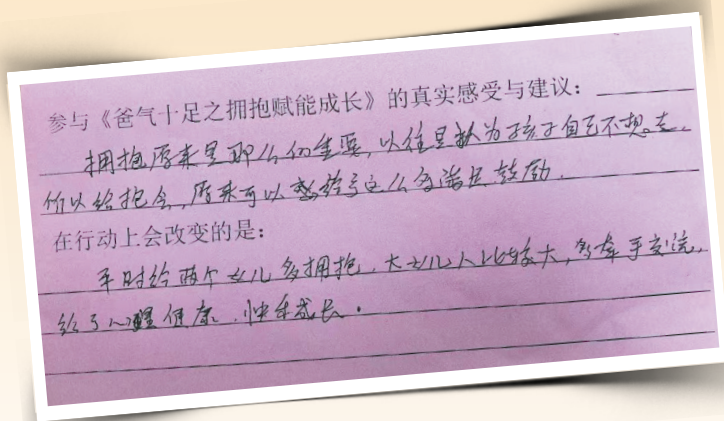 参与《爸气十足之拥抱赋能成长》的真实感受与建议：
拥抱原来是那么的重要，以往是认为孩子自己不想去，
所以给抱会，原来可以给这么多满足鼓励．
在行动上会改变的是：
平时给两个女儿多拥抱．大女儿人比较大，多牵手交流，
给予心健康．快乐成长．